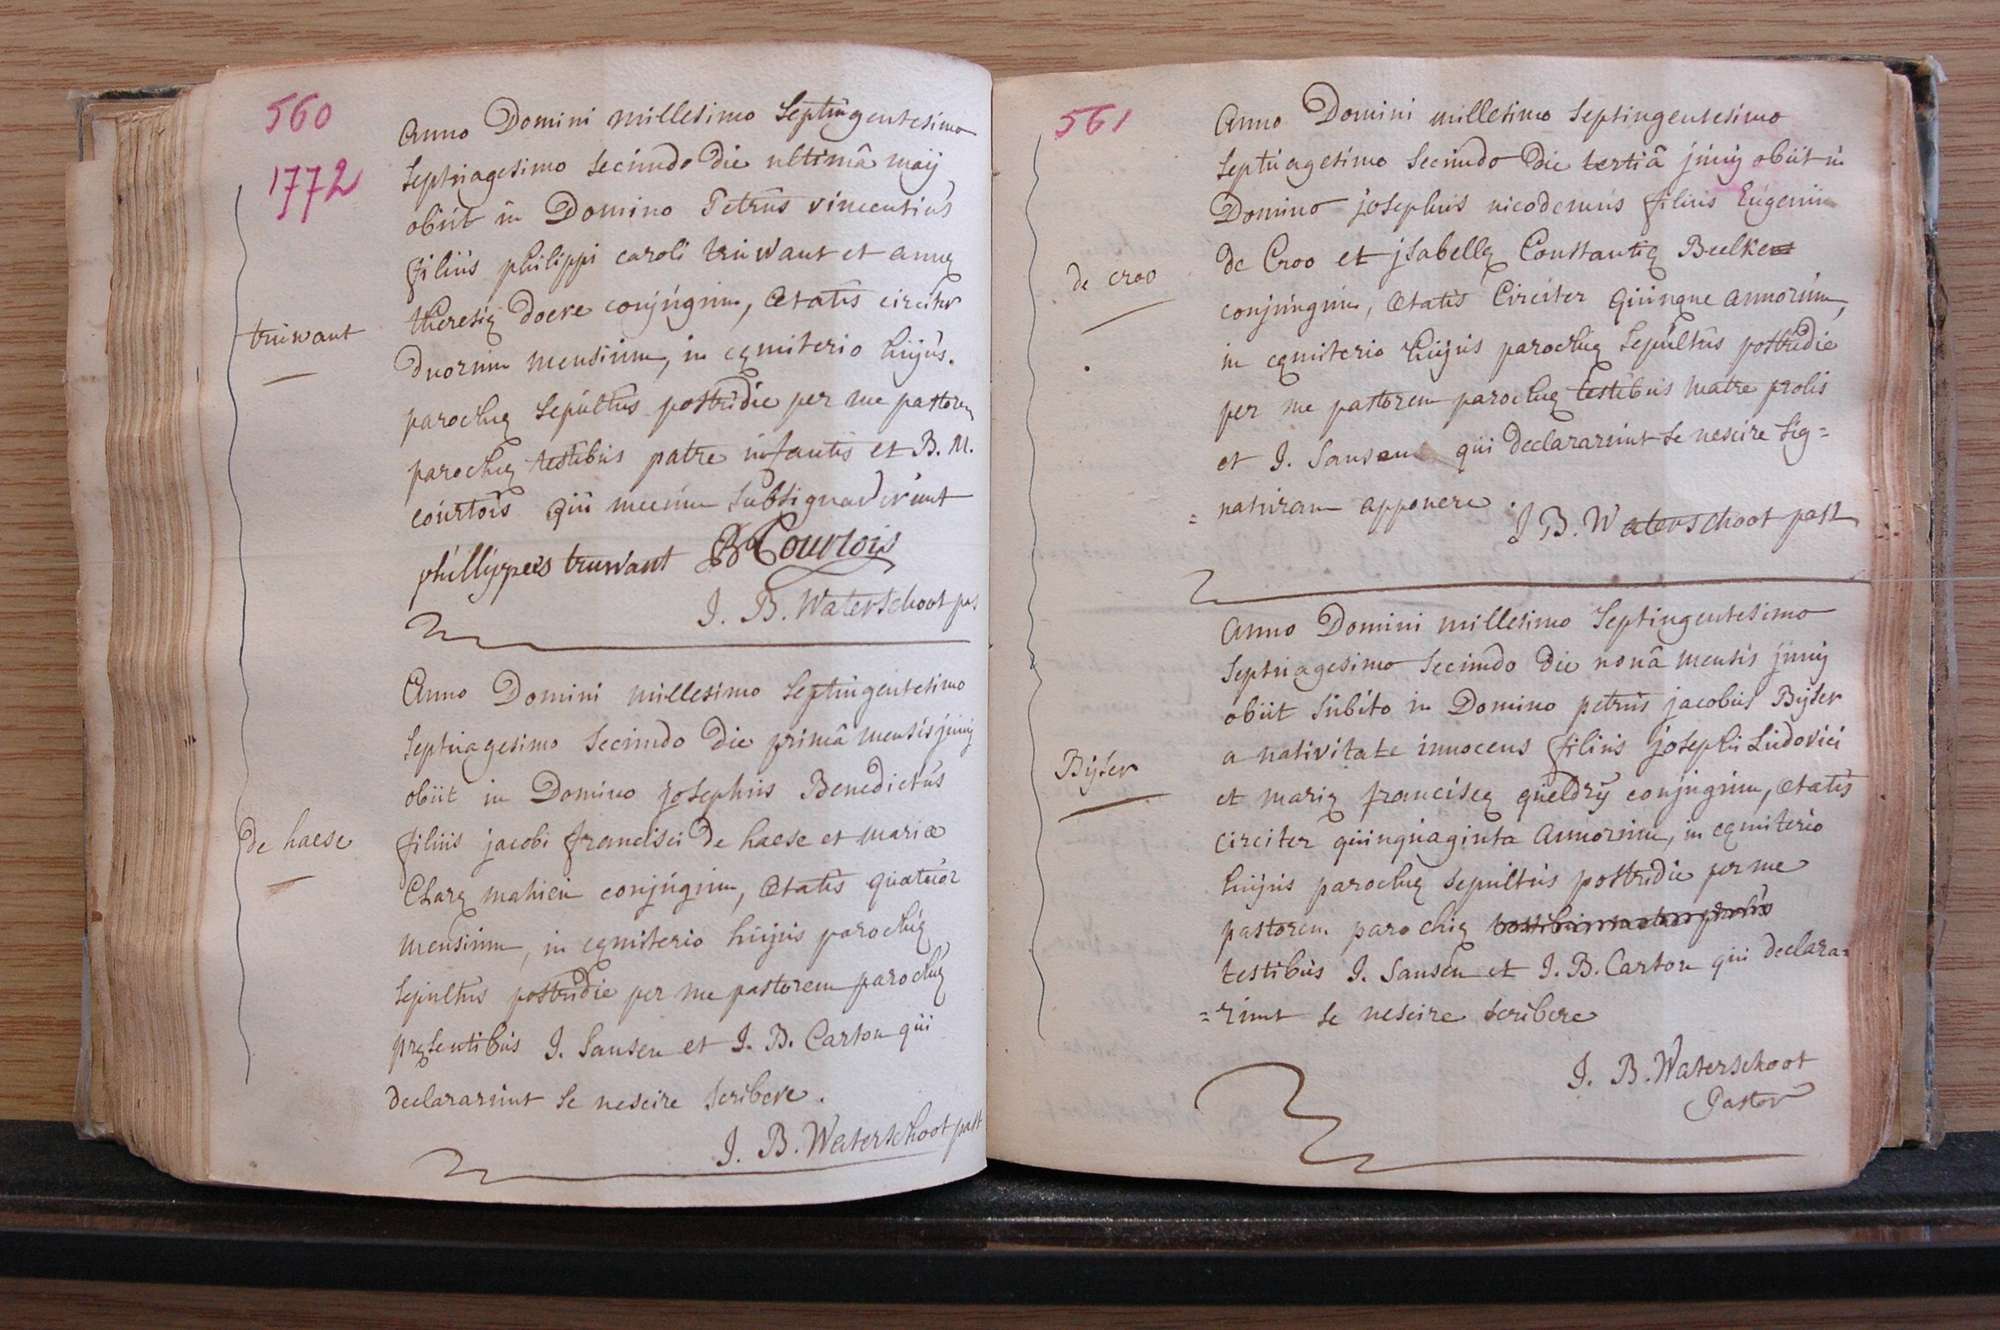 560
1772
Anno Domini millesimo Septingentesimo
Septuagesimo Secundo die ultimâ maij
obiit in Domino Petrus vincentius
filius philippi caroli truwant et annę
theresię doere conjugum, ætatis circiter
truwant
duorum mensium, in cęmiterio hujus.
parochię sepultus postridie per me pastorem
parochię testibus patre infantis et B. M.
courtois qui mecum subsignaverunt
phillippeus truwant B Courtois
J. B. Waterschoot pas
Anno Domini millesimo Septingentesimo
Septuagesimo Secundo die primâ mensis junij
obiit in Domino josephus Benedictus
de haese
filius jacobi francisci de haese et mariæ
Clarę mahieu conjugum, ætatis quatuor
mensium, in cęmiterio hujus parochię
sepultus postridie per me pastorem parochię
pręsentibus J. Sansen et J. B. Carton qui
declararunt se nescire scribere.
J. B. Waterschoot past
561
Anno Domini millesimo Septingentesimo
Septuagesimo Secundo die tertiâ junij obiit in
Domino josephus nicodemus filius Eugenii
de Croo et jsabellę Constantię Beelke
de croo
conjugum, ætatis Circiter quinque annorum,
in cęmiterio hujus parochię sepultus postridie
per me pastorem parochię testibus matre prolis
et J. Sansen qui declararunt se nescire sig=
=naturam apponere.
J B. Waterschoot past
Anno Domini millesimo Septingentesimo
Septuagesimo Secundo die nonâ mensis junij
obiit subito in Domino petrus jacobus Bijser
a nativitate innocens filius josephi Ludovici
Bijser
et marię franciscę queldrij conjugum, ætatis
circiter quinquaginta annorum, in cęmiterio
hujus parochię sepultus postridie per me
pastorem parochię testibus matre prolis
testibus J. Sansen et J. B. Carton qui declara=
=runt se nescire scribere
J. B. Waterschoot
Pastor